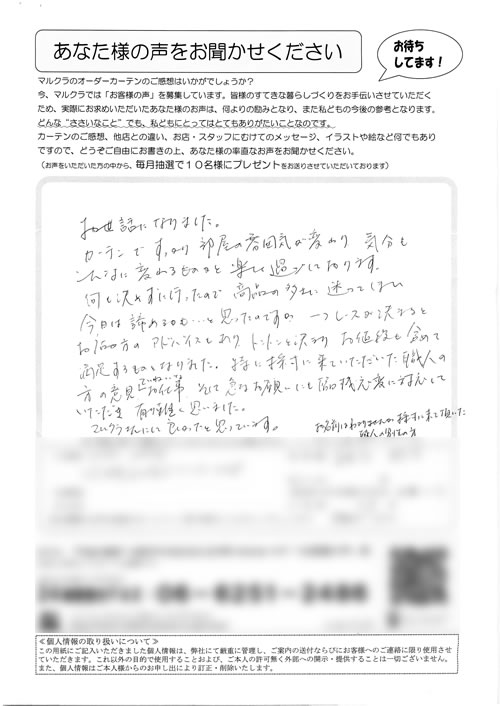 あなた様の声をお聞かせください
お待ち
してます！
マルクラのオーダーカーテンのご感想はいかがでしょうか？
今、マルクラでは「お客様の声」を募集しています。皆様のすてきな暮らしづくりをお手伝いさせていただく
ため、実際にお求めいただいたあなた様のお声は、何よりの励みとなり、また私どもの今後の参考となります。
どんな“ささいなこと”でも、私どもにとってはとてもありがたいことなのです。
カーテンのご感想、他店との違い、お店・スタッフにむけてのメッセージ、イラストや絵など何でもあり
ですので、どうぞご自由にお書きの上、あなた様の率直なお声をお聞かせください。
（お声をいただいた方の中から、毎月抽選で１０名様にプレゼントをお送りさせていただいております）
お世話になりました。
カーテンで すっかり 部屋の雰囲気が変わり 気分も
こんなに変わるものかと 楽しく過ごしております。
何も決めずに行ったので 商品の多さに 迷ってしまい
今日は 諦めるかも…と思ったのですが 一つレースが決まると
お店の方の アドバイスもあり トントンと決まり お値段も含めて
満足するものとなりました。特に採寸に来ていただいた職人の
方の意見 ていねいなお仕事 そして 急なお願いにも 臨機応変に対応して
いただき 有難く思いました。
マルクラさんにして よかったと思っています。
お名前はわかりませんが 採寸に来て頂いた
職人の男性の方
≪個人情報の取り扱いについて≫
この用紙にご記入いただきました個人情報は、弊社にて厳重に管理し、ご案内の送付ならびにお客様へのご連絡に限り使用させ
ていただきます。これ以外の目的で使用することおよび、ご本人の許可無く外部への開示・提供することは一切ございません。
また、個人情報はご本人様からのお申し出により訂正・削除いたします。